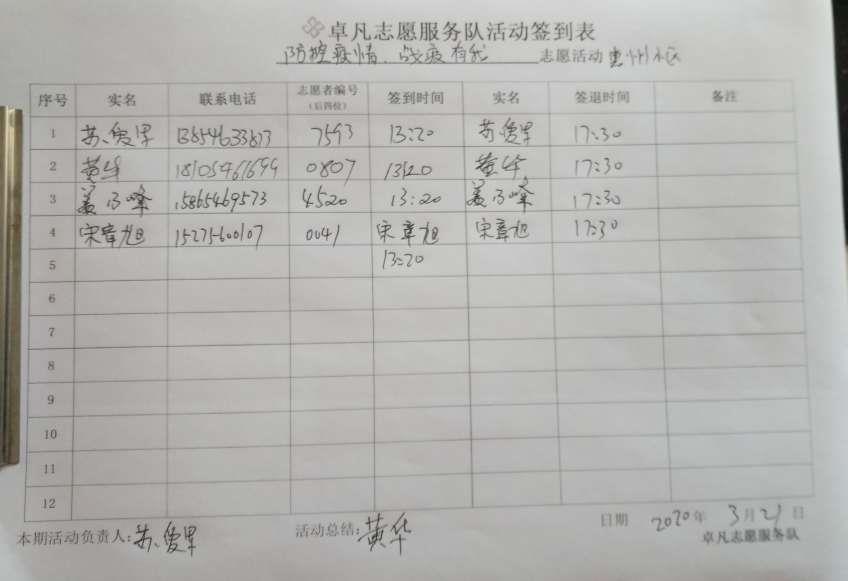 卓凡志愿服务队活动签到表
防控疫情、战疫有我 志愿活动 惠州社区
序号 实名 联系电话 志愿者编号(后四位) 签到时间 实名 签退时间 备注
1 苏俊早 13854633873 7593 13:20 苏俊早 17:30
2 黄华 18105461699 0807 13:20 黄华 17:30
3 姜乃峰 15865469573 4520 13:20 姜乃峰 17:30
4 宋章旭 15275600107 0041 宋章旭 宋章旭 17:30
5 13:20
6
7
8
9
10
11
12
本期活动负责人:苏俊早 活动总结:黄华 日期 2020年 3月21日
卓凡志愿服务队